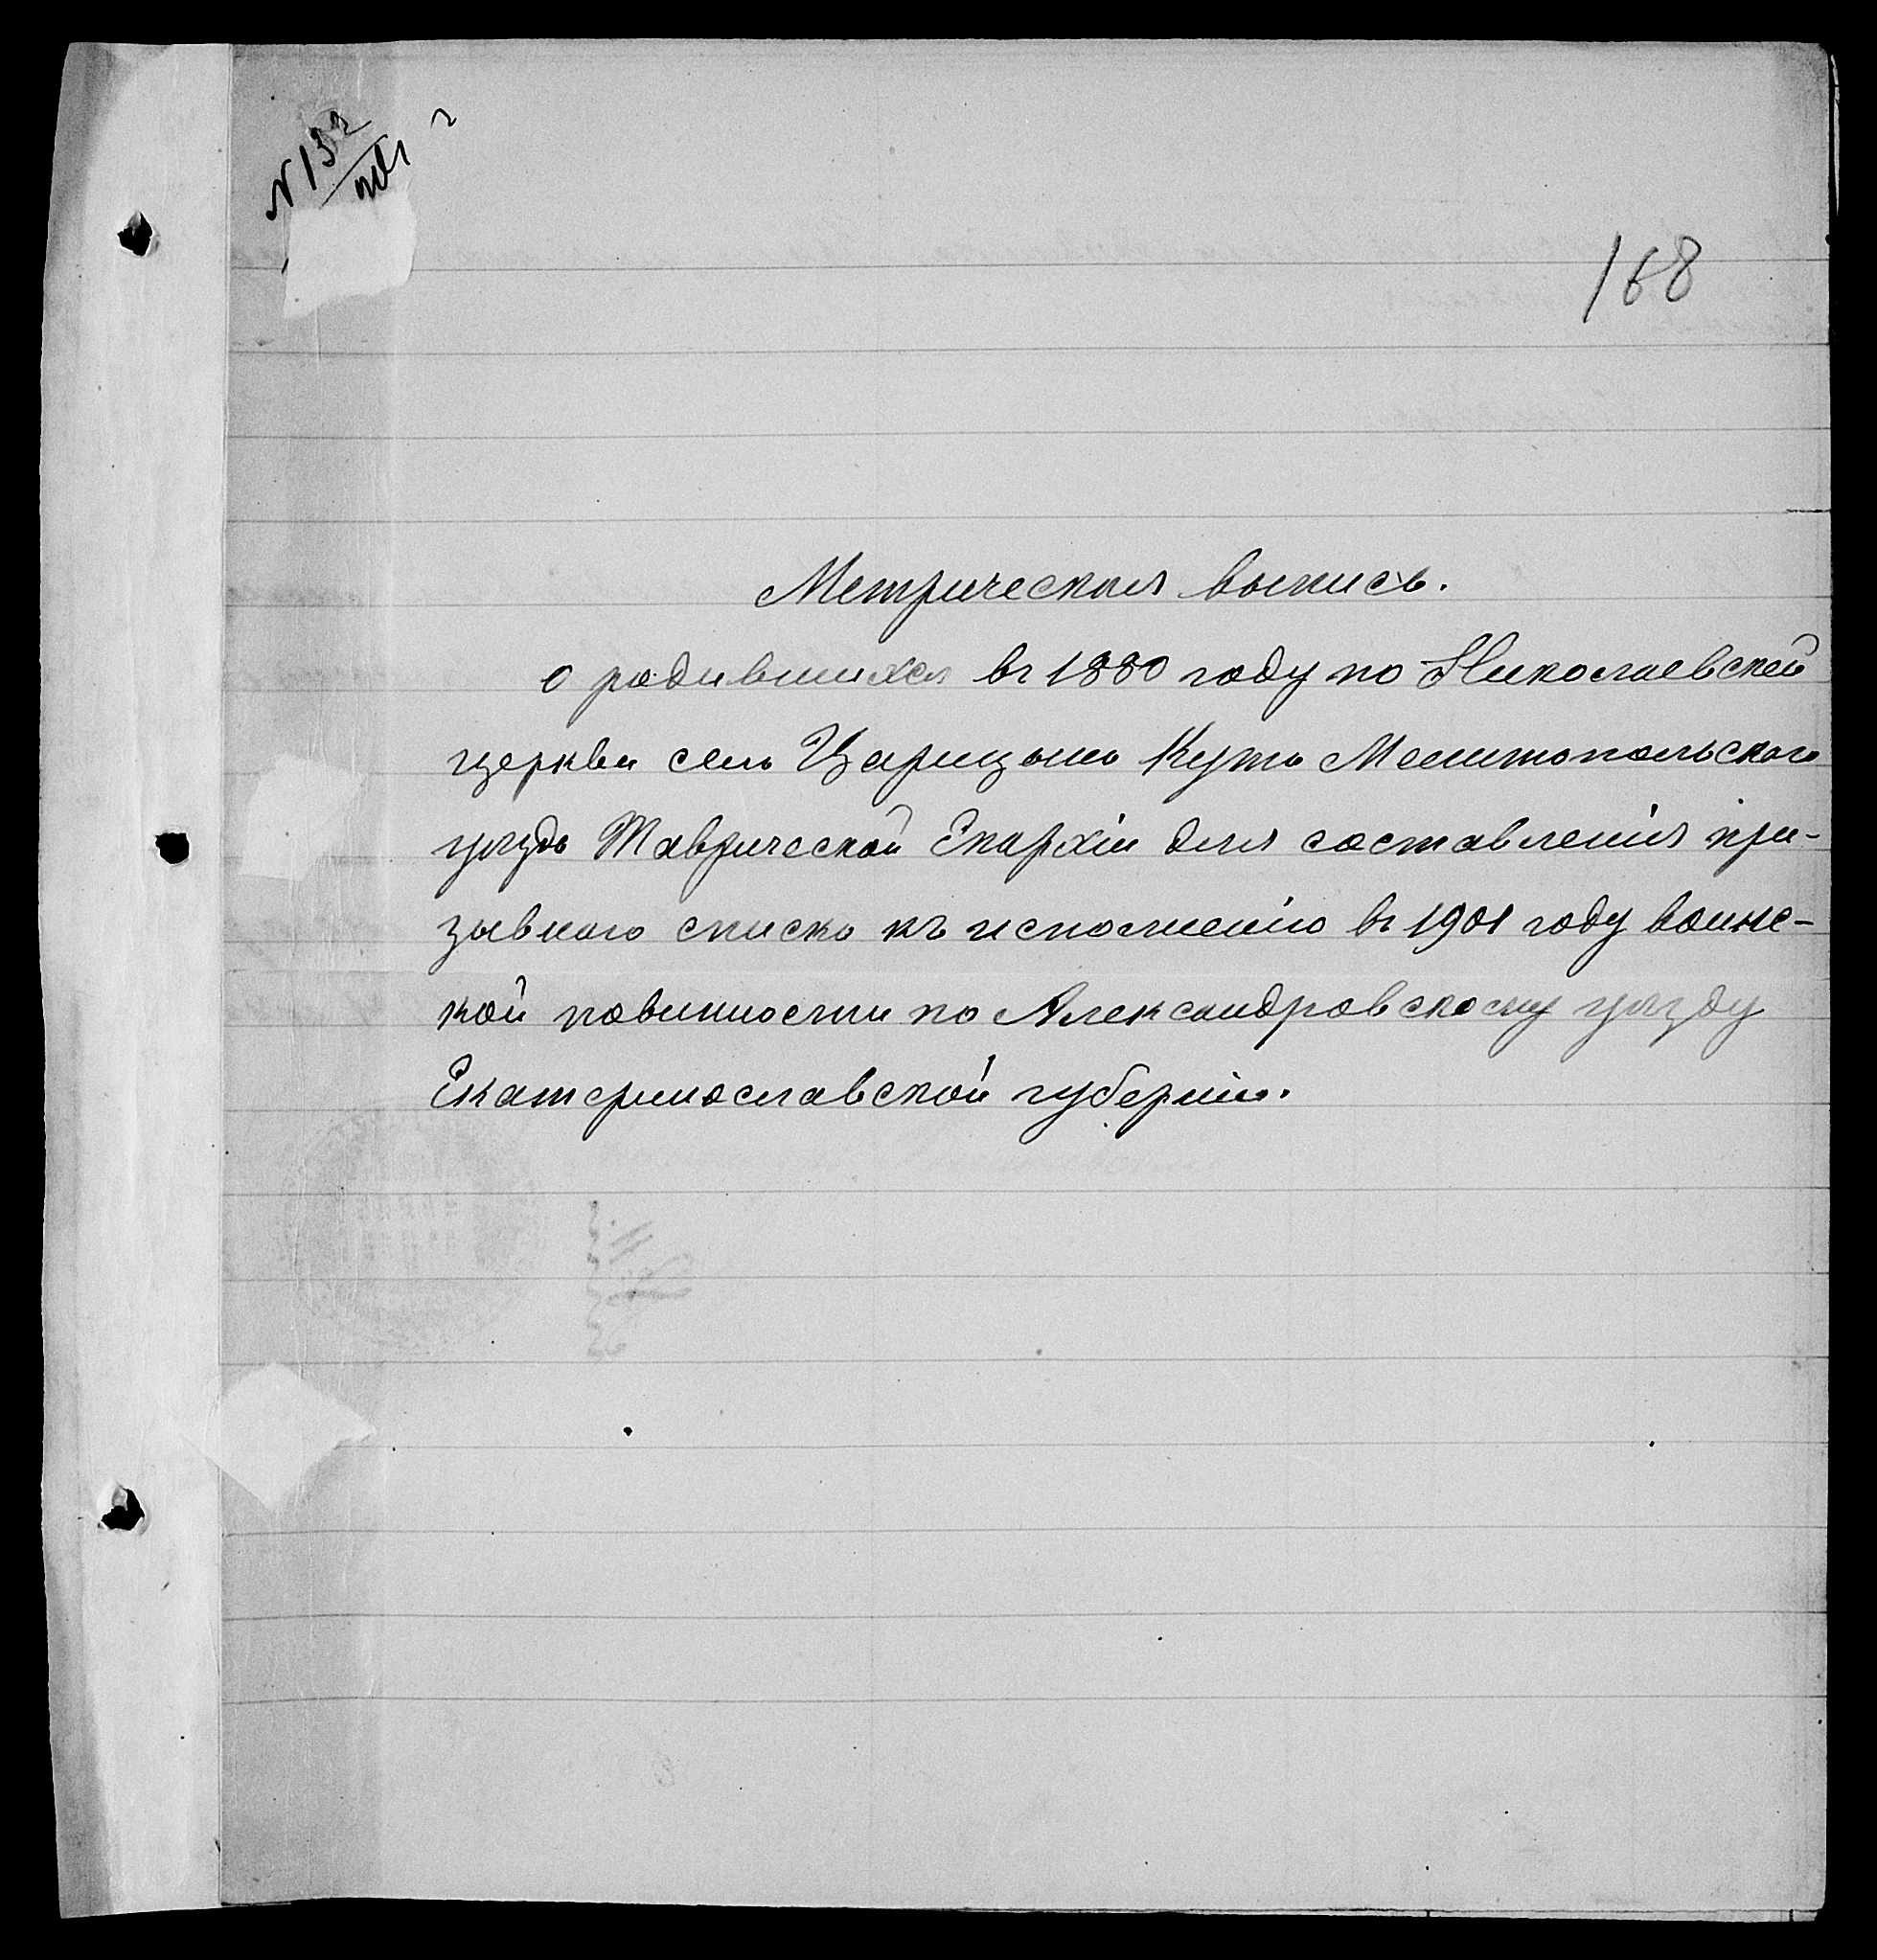 N 132
168
Метрическая выпись.
о родившихся въ 1880 году по Николаевской
церкви села Царицына Кута Мелитопольскаго
уѣзда Таврической Епархіи для составленія при-
зывнаго списка къ исполненію въ 1901 году воинс-
кой повинности по Александровскому уѣзду
Екатеринославской губерніи.